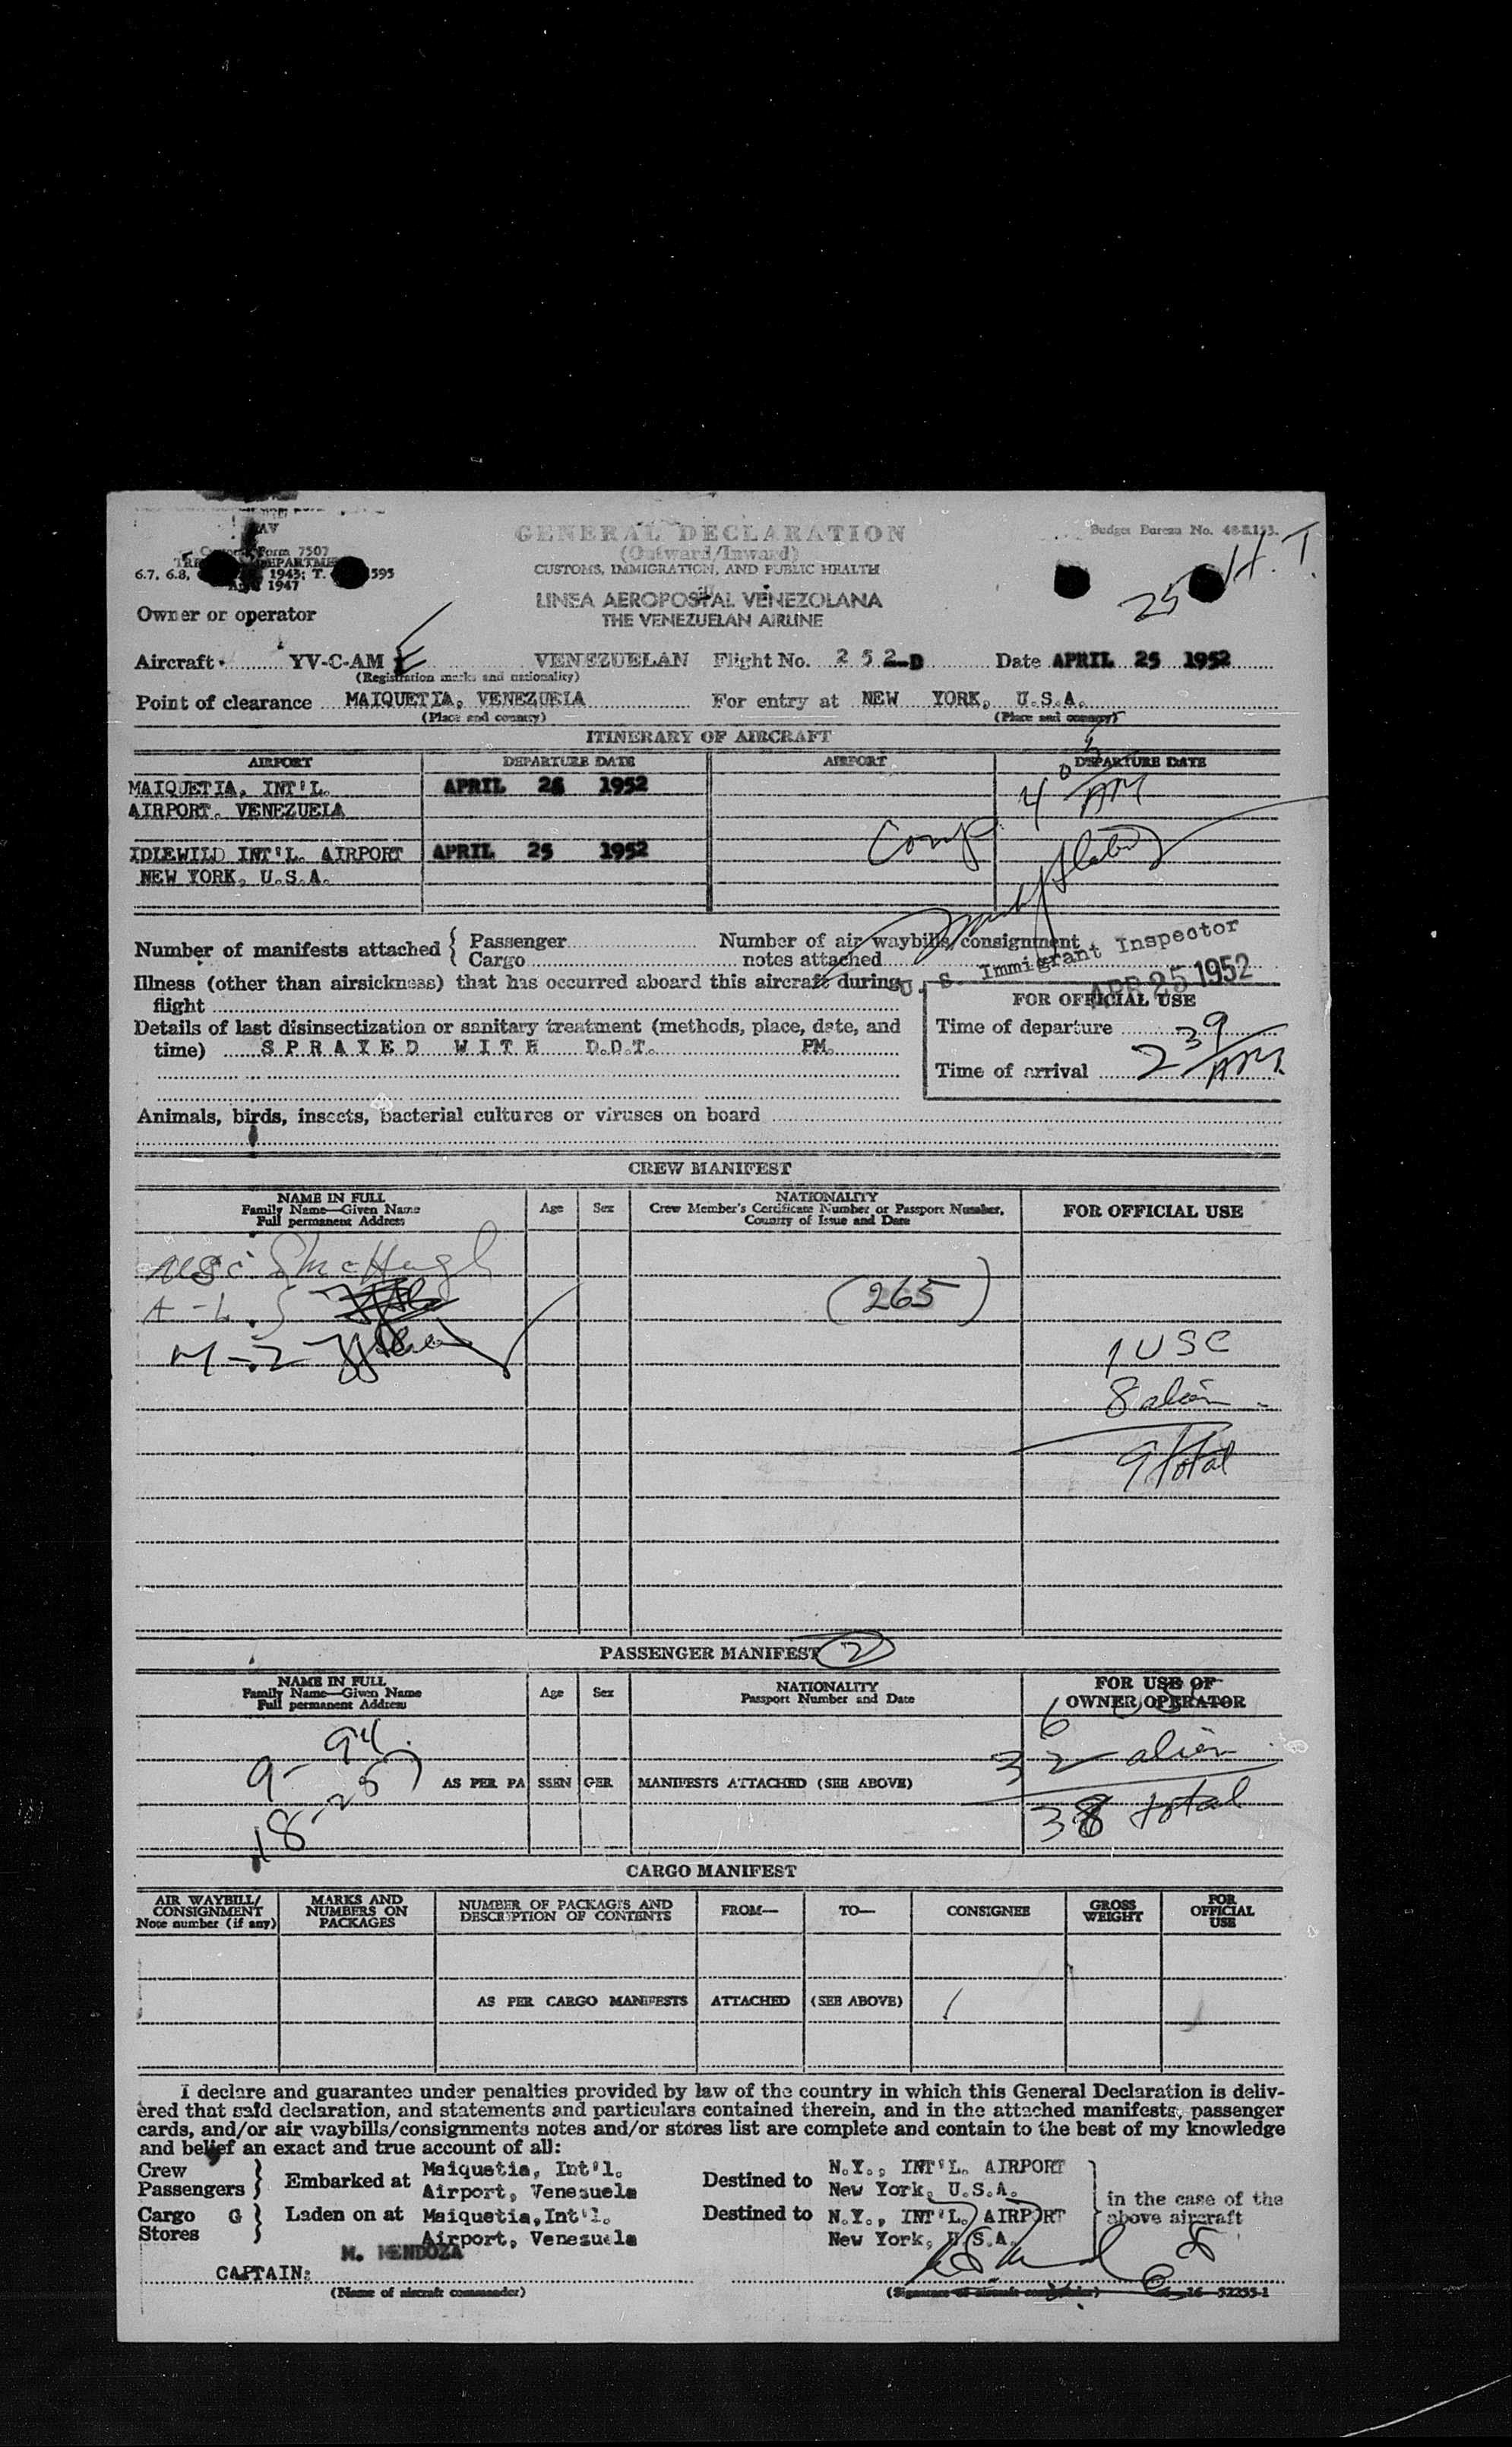 GENERAL DECLARATION
(Outward/Inward)
CUSTOMS, IMMIGRATION, AND PUBLIC HEALTH
Budget Bureau No. 48-R153.
LAV
Customs Form 7507
TREASURY DEPARTMENT
6.7, 6.8, 1943; T. 595
April 1947
25 H.T.
LINEA AEROPOSTAL VENEZOLANA
THE VENEZUELAN AIRLINE
Owner or operator
Aircraft YV-C-AM E VENEZUELAN Flight No. 252-D Date APRIL 25 1952
(Registration marks and nationality)
Point of clearance MAIQUETIA, VENEZUELA For entry at NEW YORK, U.S.A.
(Place and country) (Place and country)
ITINERARY OF AIRCRAFT
AIRPORT DEPARTURE DATE AIRPORT DEPARTURE DATE
MAIQUETIA, INT'L. APRIL 26 1952
AIRPORT. VENEZUELA
4 05 AM
Comp
IDLEWILD INT'L. AIRPORT APRIL 25 1952
NEW YORK, U.S.A.
Number of manifests attached { Passenger Number of air waybills/consignment
Cargo notes attached
U. S. Immigrant Inspector
APR 25 1952
Illness (other than airsickness) that has occurred aboard this aircraft during
flight
FOR OFFICIAL USE
Details of last disinsectization or sanitary treatment (methods, place, date, and
time) SPRAYED WITH D.D.T. PM.
Time of departure
Time of arrival 2 39 AM
Animals, birds, insects, bacterial cultures or viruses on board
CREW MANIFEST
NAME IN FULL Age Sex NATIONALITY FOR OFFICIAL USE
Family Name—Given Name Crew Member's Certificate Number or Passport Number,
Full permanent Address Country of Issue and Date
USC McHugh
A-L. 5 (265)
M-2
1 USC
8 alien
9 total
PASSENGER MANIFEST (2)
NAME IN FULL Age Sex NATIONALITY FOR USE OF
Family Name—Given Name Passport Number and Date OWNER OPERATOR
Full permanent Address
6
9-94. 32 alien
AS PER PASSENGER MANIFESTS ATTACHED (SEE ABOVE)
18-25 38 total
CARGO MANIFEST
AIR WAYBILL/ CONSIGNMENT Note number (if any) MARKS AND NUMBERS ON PACKAGES NUMBER OF PACKAGES AND DESCRIPTION OF CONTENTS FROM— TO— CONSIGNEE GROSS WEIGHT FOR OFFICIAL USE
AS PER CARGO MANIFESTS ATTACHED (SEE ABOVE)
I declare and guarantee under penalties provided by law of the country in which this General Declaration is deliv-
ered that said declaration, and statements and particulars contained therein, and in the attached manifests, passenger
cards, and/or air waybills/consignments notes and/or stores list are complete and contain to the best of my knowledge
and belief an exact and true account of all:
Crew
Passengers } Embarked at Maiquetia, Int'l. Airport, Venezuela Destined to N.Y., INT'L. AIRPORT New York, U.S.A.
Cargo G
Stores } Laden on at Maiquetia, Int'l. Airport, Venezuela Destined to N.Y., INT'L. AIRPORT New York, U.S.A.
in the case of the
above aircraft
M. MENDOZA
CAPTAIN:
(Name of aircraft commander) (Signature of aircraft commander) 16—52255-1